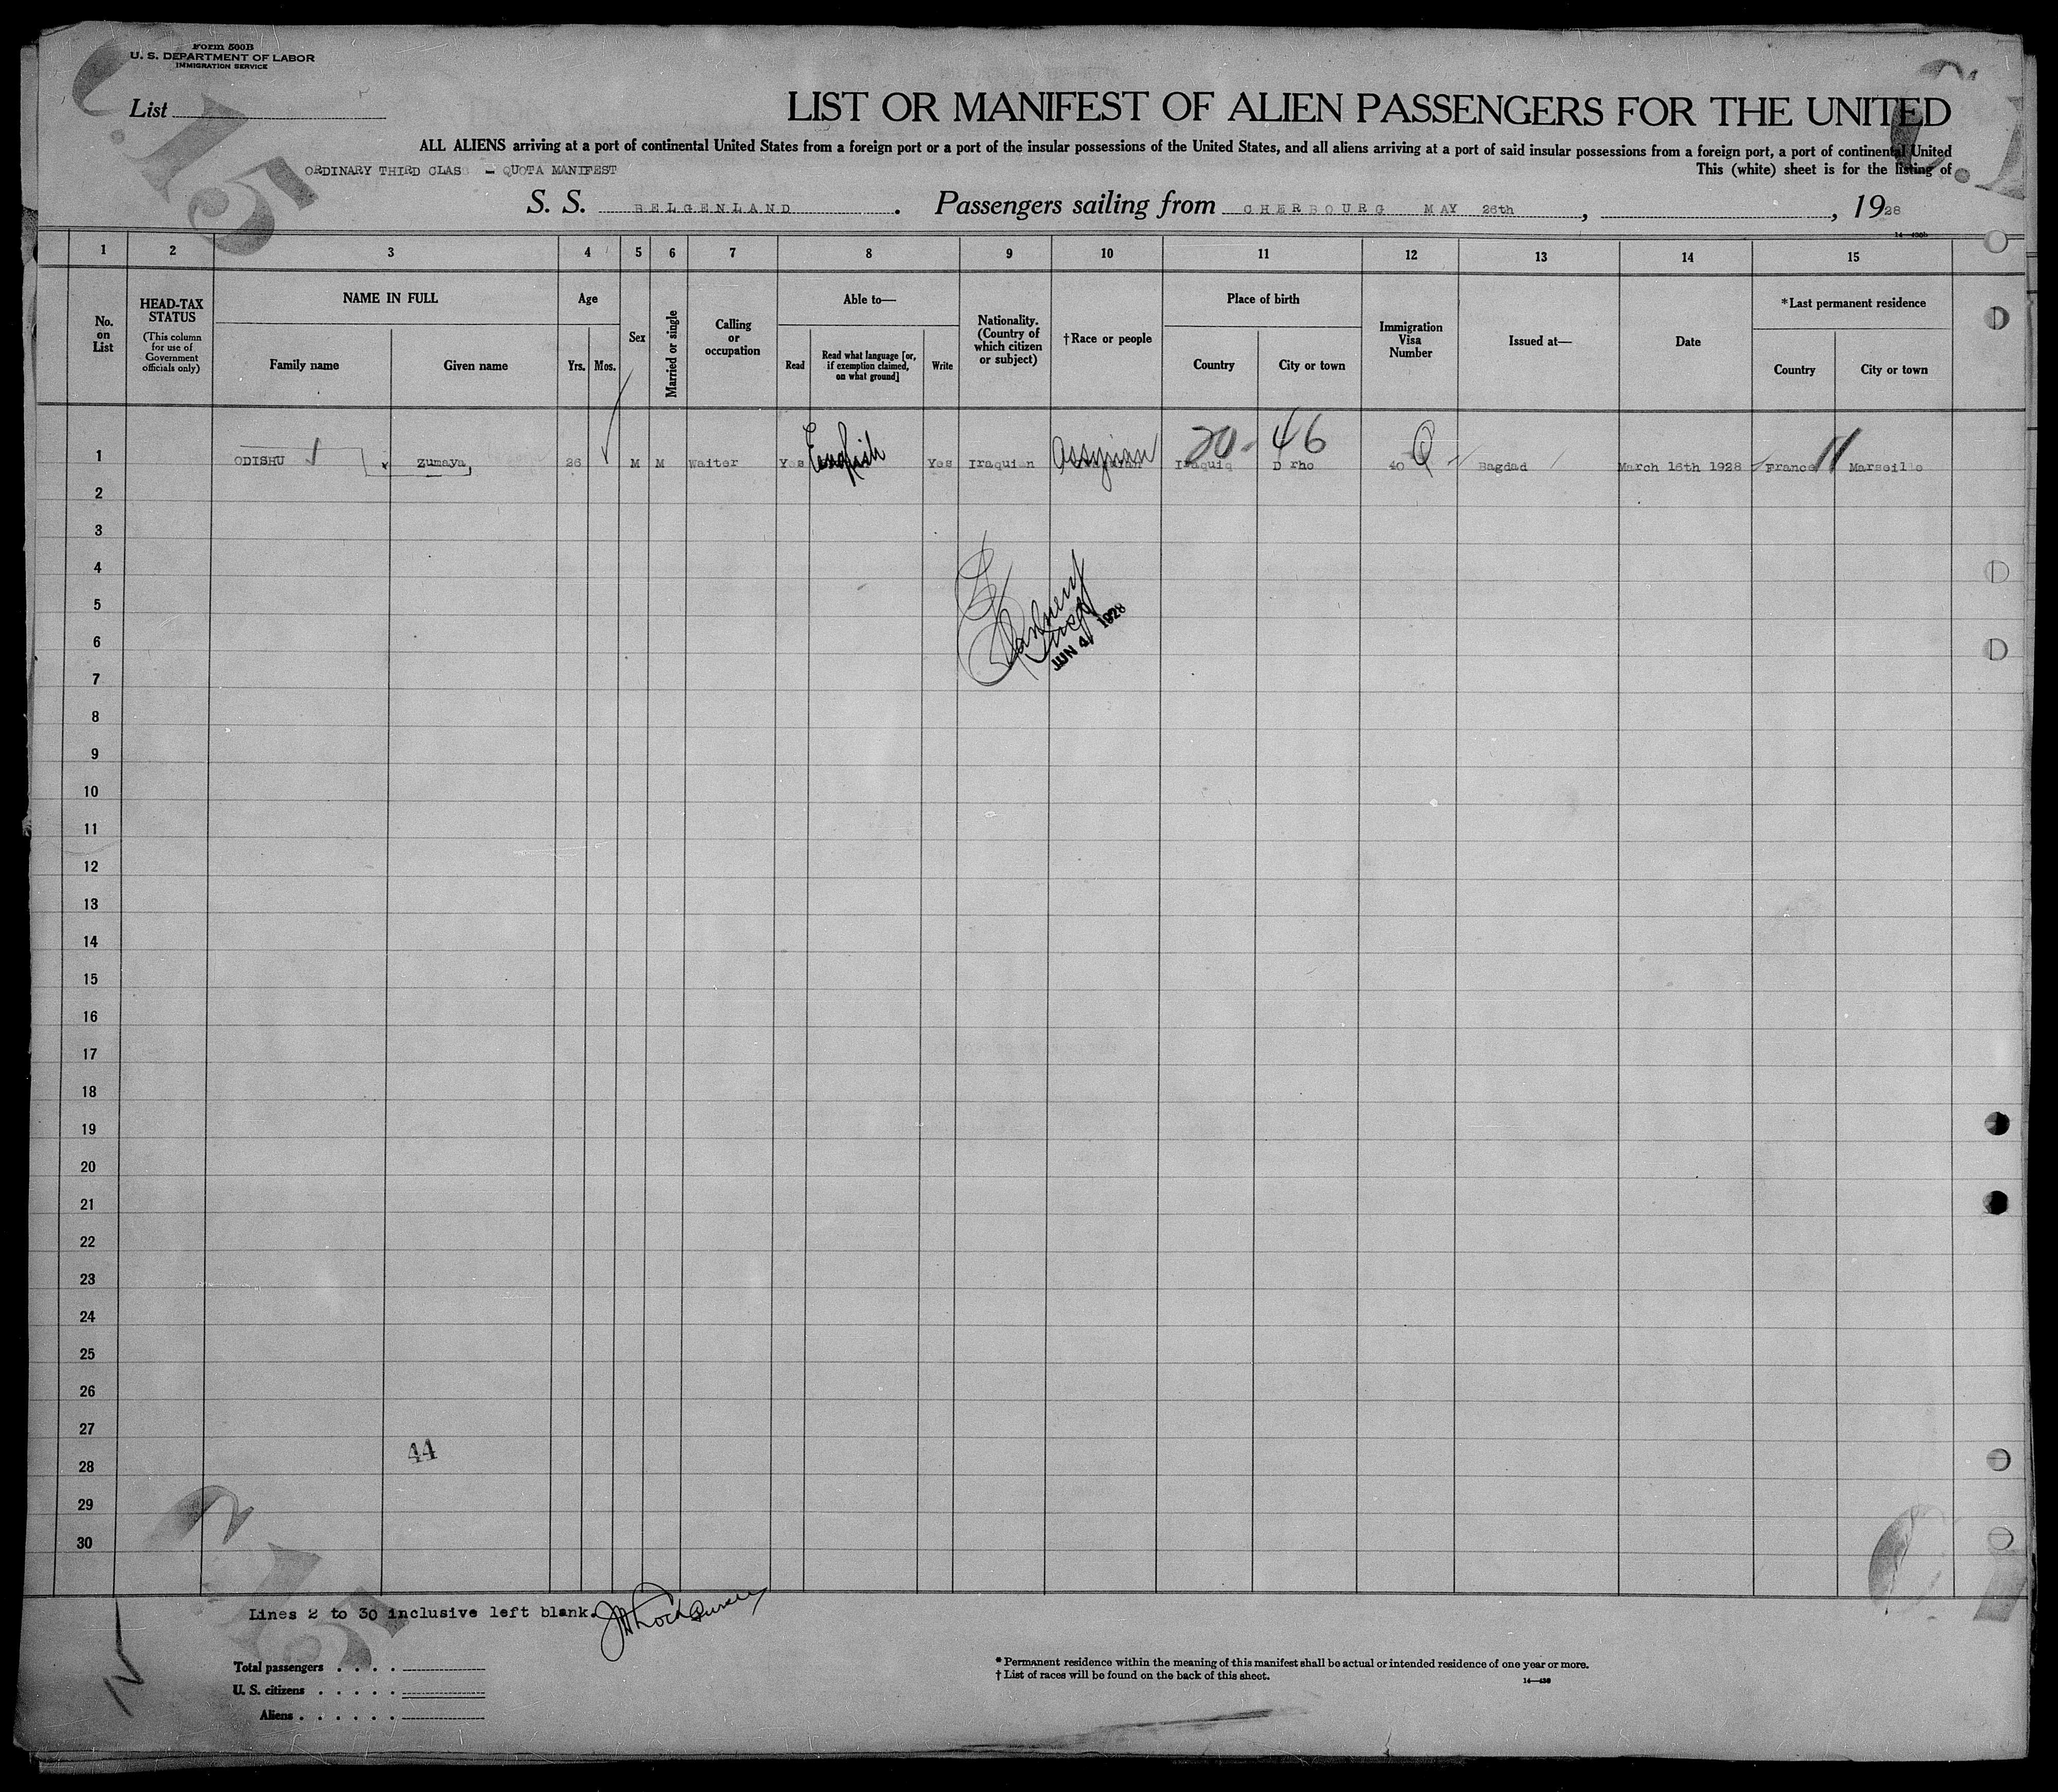 Form 500B
U. S. DEPARTMENT OF LABOR
IMMIGRATION SERVICE
List
C.15
LIST OR MANIFEST OF ALIEN PASSENGERS FOR THE UNITED
ALL ALIENS arriving at a port of continental United States from a foreign port or a port of the insular possessions of the United States, and all aliens arriving at a port of said insular possessions from a foreign port, a port of continental United
ORDINARY THIRD CLASS - QUOTA MANIFEST
This (white) sheet is for the listing of
S. S. BELGENLAND. Passengers sailing from CHERBOURG MAY 26th, , 1928
1 2 3 4 5 6 7 8 9 10 11 12 13 14 15
No. on List
HEAD-TAX STATUS
(This column for use of Government officials only)
NAME IN FULL
Family name
Given name
Age
Yrs.
Mos.
Sex
Married or single
Calling or occupation
Able to—
Read
Read what language [or, if exemption claimed, on what ground]
Write
Nationality. (Country of which citizen or subject)
†Race or people
Place of birth
Country
City or town
Immigration Visa Number
Issued at—
Date
*Last permanent residence
Country
City or town
20-46
1 ODISHU Zumaya, 26 M M Waiter Yes English Yes Iraquian Assyrian Iraquiq D rho 40 Q Bagdad March 16th 1928 France Marseille
2
3
4
5
6
JUN 4 1928
7
8
9
10
11
12
13
14
15
16
17
18
19
20
21
22
23
24
25
26
27
44
28
29
30
Lines 2 to 30 inclusive left blank.
Total passengers
U. S. citizens
Aliens
* Permanent residence within the meaning of this manifest shall be actual or intended residence of one year or more.
† List of races will be found on the back of this sheet.